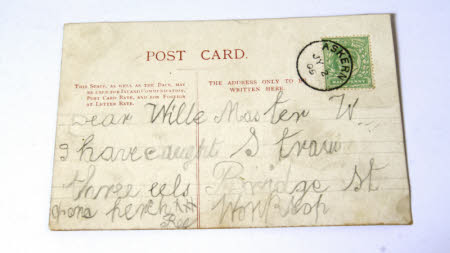 POST CARD.
THIS SPACE, AS WELL AS THE BACK, MAY
BE USED FOR INLAND COMMUNICATION,
POST CARD RATE, AND FOR FOREIGN
AT LETTER RATE.
THE ADDRESS ONLY TO BE
WRITTEN HERE
ASKERN
JY 2
Dear Wille
I have caught
three eels
perch
Master W
Straw
Bridge St
Worksop